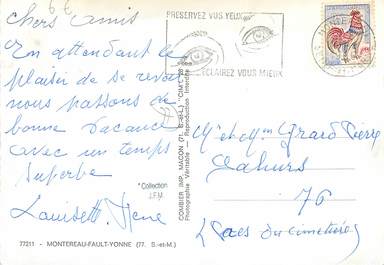 6€
chers amis
En attendant le
plaisir de se revoir
nous passons de
bonne vacance
avec un temps
superbe
Louisette René
*Collection
J.F.M.
77211 - MONTEREAU-FAULT-YONNE (77. S.-et-M.)
COMBIER IMP. MACON (S.-&-L.) "CIM"
Photographie Véritable - Reproduction Interdite
PRESERVEZ VOS YEUX
ECLAIREZ VOUS MIEUX
Mr et Mme Grard Pierre
Cahurs
76